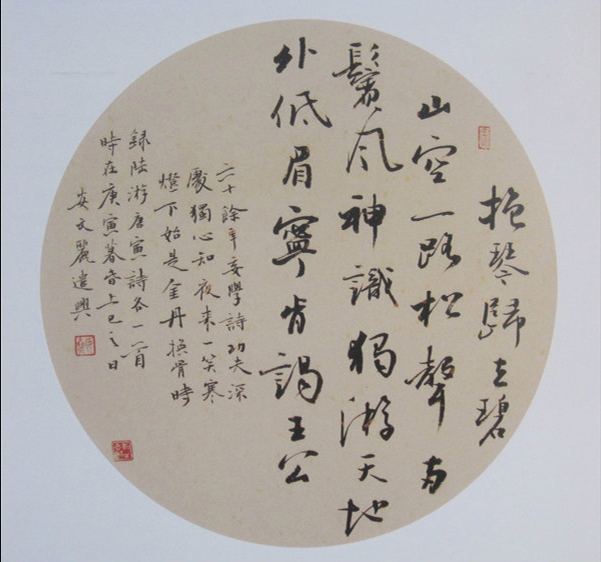 抱琴歸去碧
山空一路松聲兩
鬢風神識獨游天地
外低眉寧肯謁王公
六十餘年妄學詩功夫深
處獨心知夜來一笑寒
燈下始是金丹換骨時
錄陸游唐寅詩各一首
時在庚寅暮春上巳之日
安文麗遣興